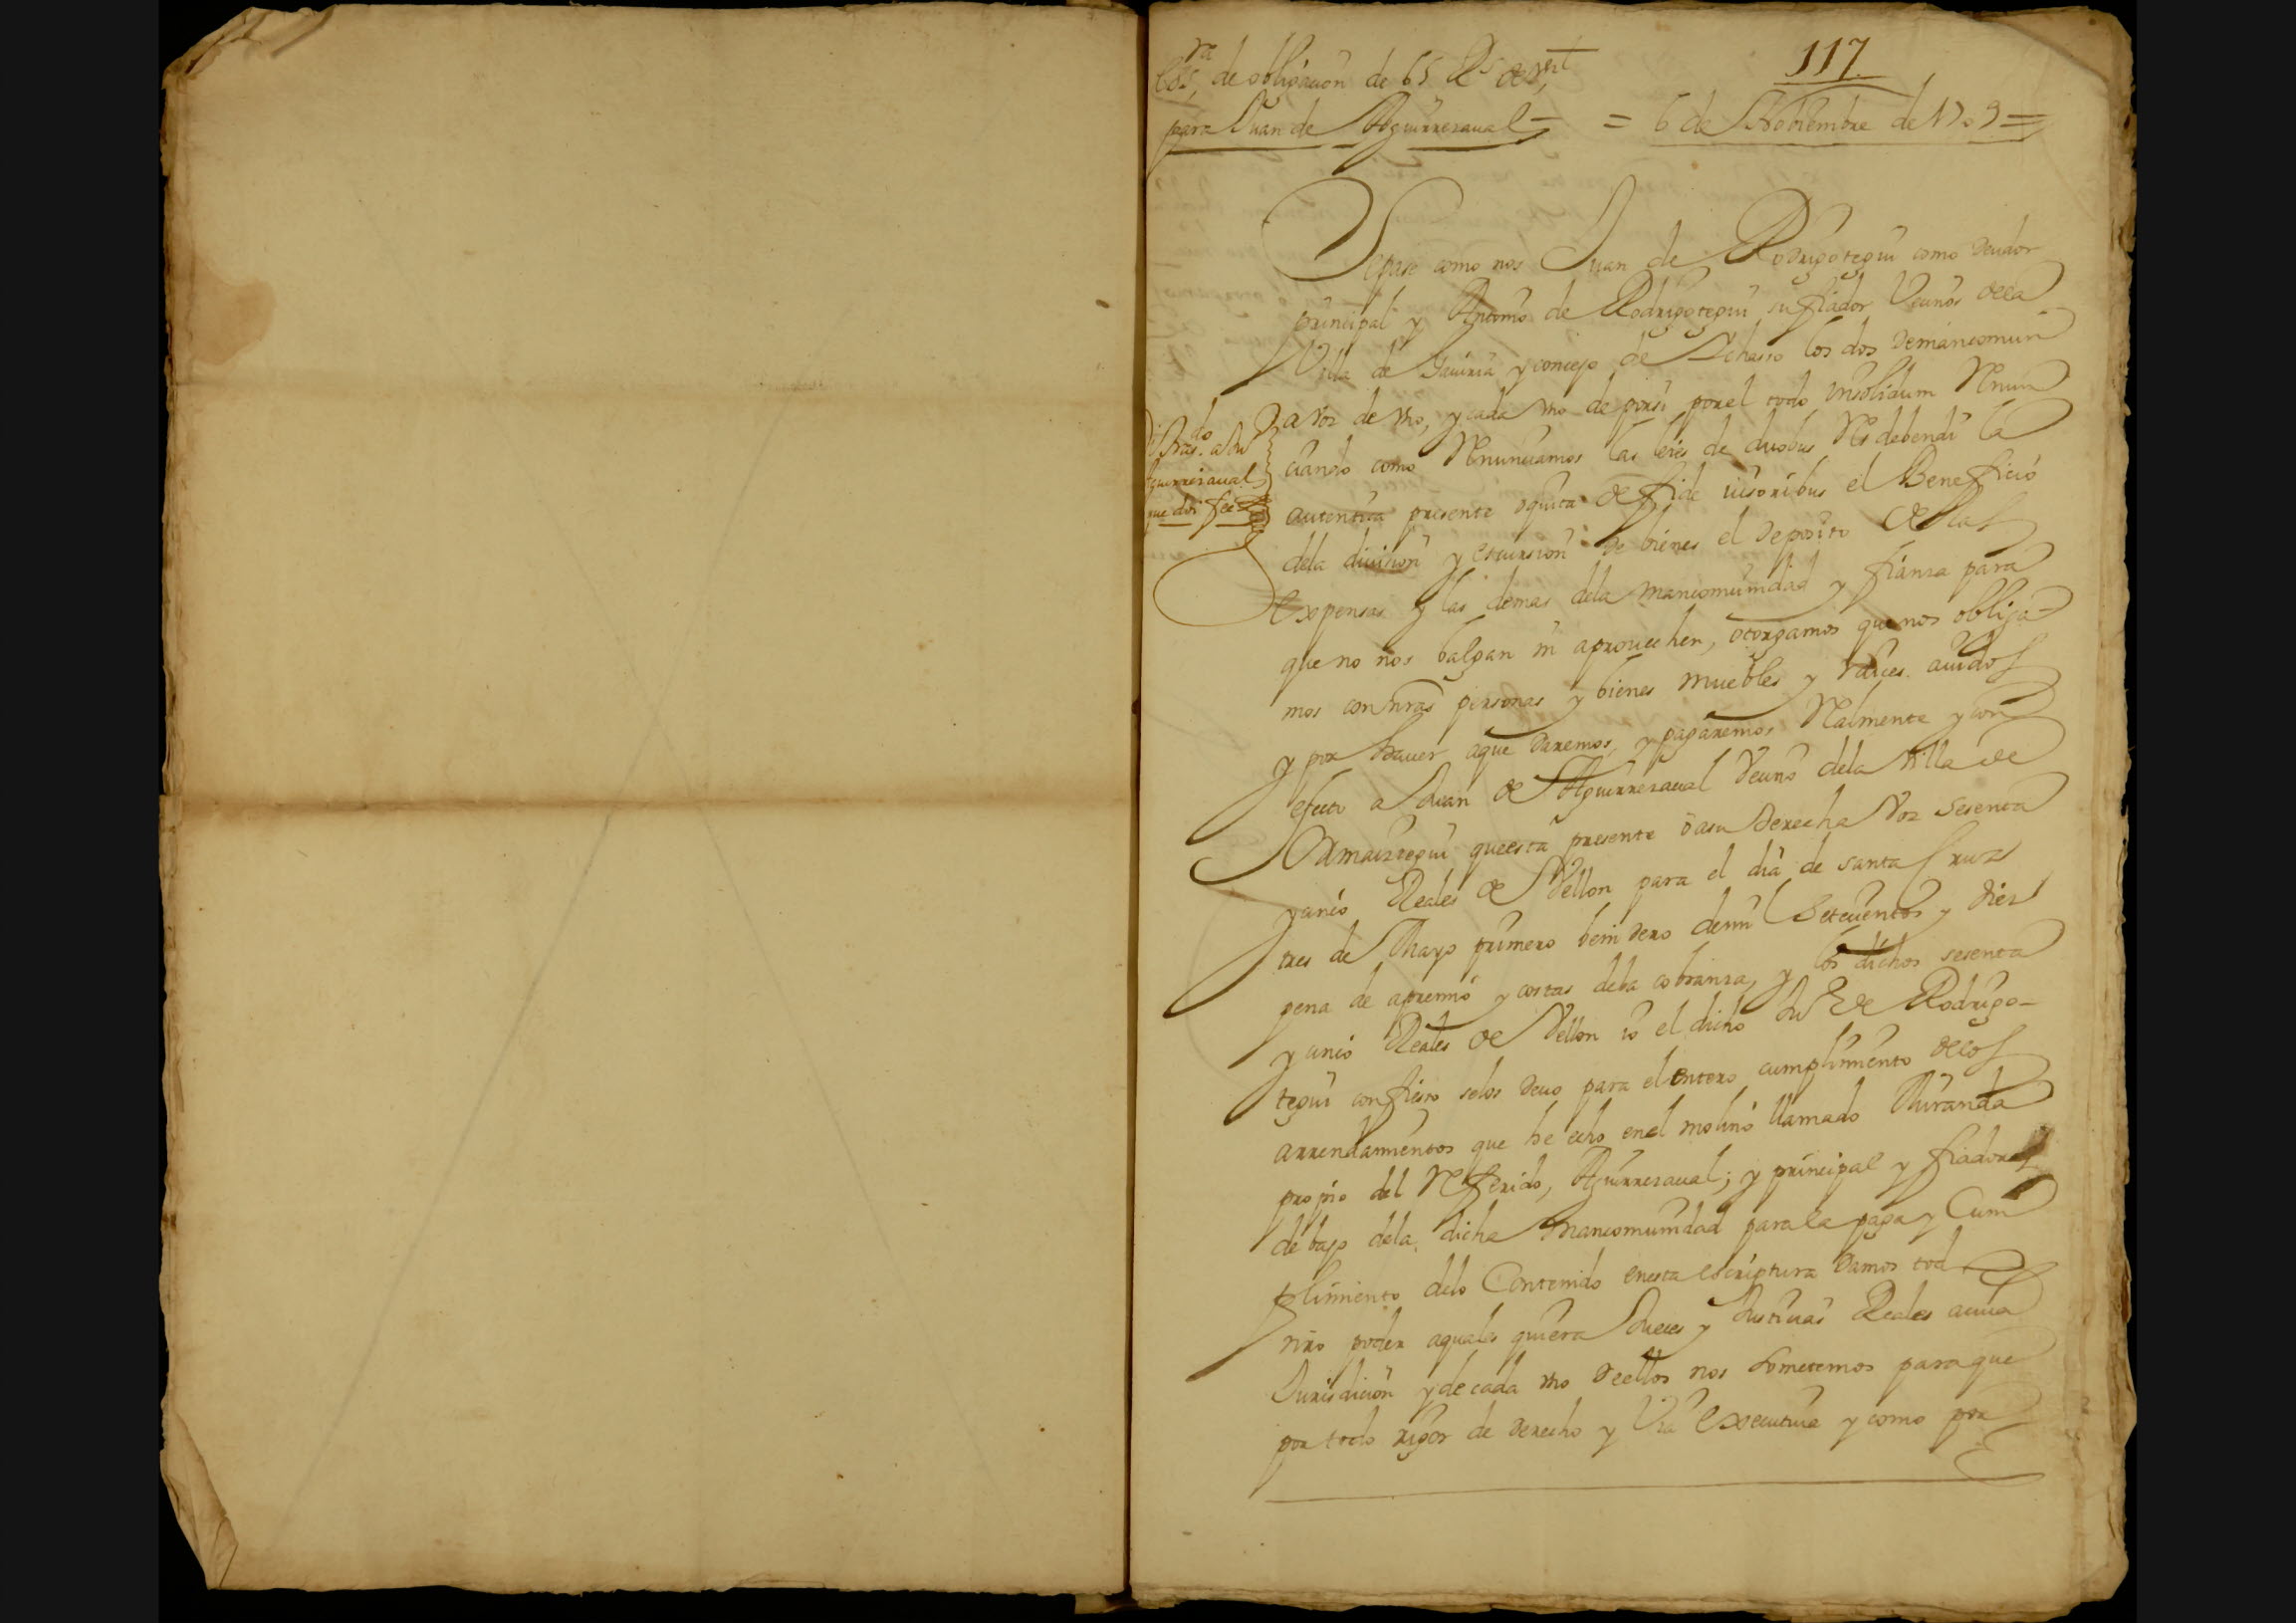 117
Essra de obligaçion de 65 Rs de vellt
para Juan de Aguirreçaual = 6 de Nobiembre de 1709 =
Sepase como nos Juan de Rodrigotegui como deudor
principal y Antonio de Rodrigotegui su fiador Veçinos dela
Villa de Gauiria y conçejo de Ichasso los dos demancomun
a voz de vno, y cada vno de porsi por el todo ynsolidum Renun
çiando como Renunçiamos las leies de duobus Res debendi la
autentica presente oquita de fide iusoribus el Benefiçio
dela diuision y escursion de bienes el deposito delas
expensas y las demas dela mancomunidad y fianza para
que no nos balgan ni aprouechen, otorgamos que nos obliga
mos con nras personas y bienes muebles y raiçes auidos
y por hauer aque daremos, y pagaremos Realmente y con
efecto a Juan de Aguirreçaual Veçino dela villa de
Ormaiztegui queesta presente o asu derecha voz sesenta
y çinco Reales de Vellon para el dia de santa Cruz
tres de Mayo primero benidero demil Seteçientos y diez
pena de apremio y costas dela cobranza, y los dichos sesenta
y çinco Reales de Vellon io el dicho Ju de Rodrigo-
tegui confieso selos deuo para elentero cumplimiento delos
arrendamientos que he echo enel molino llamado Miranda
propio del Referido, Aguirreçaual; y principal y fiadores
debajo dela dicha mancomunidad parala paga y Cum
plimiento delo Contenido enesta escriptura damos todo
nro poder aquales quiera Jueces y Justiçias Reales acuia
Jurisdiçion y de cada vno deellos nos sometemos paraque
por todo rigor de derecho y Via executiua y como por
do
Tras. a Ju
Aguirreçaual
que doi fee